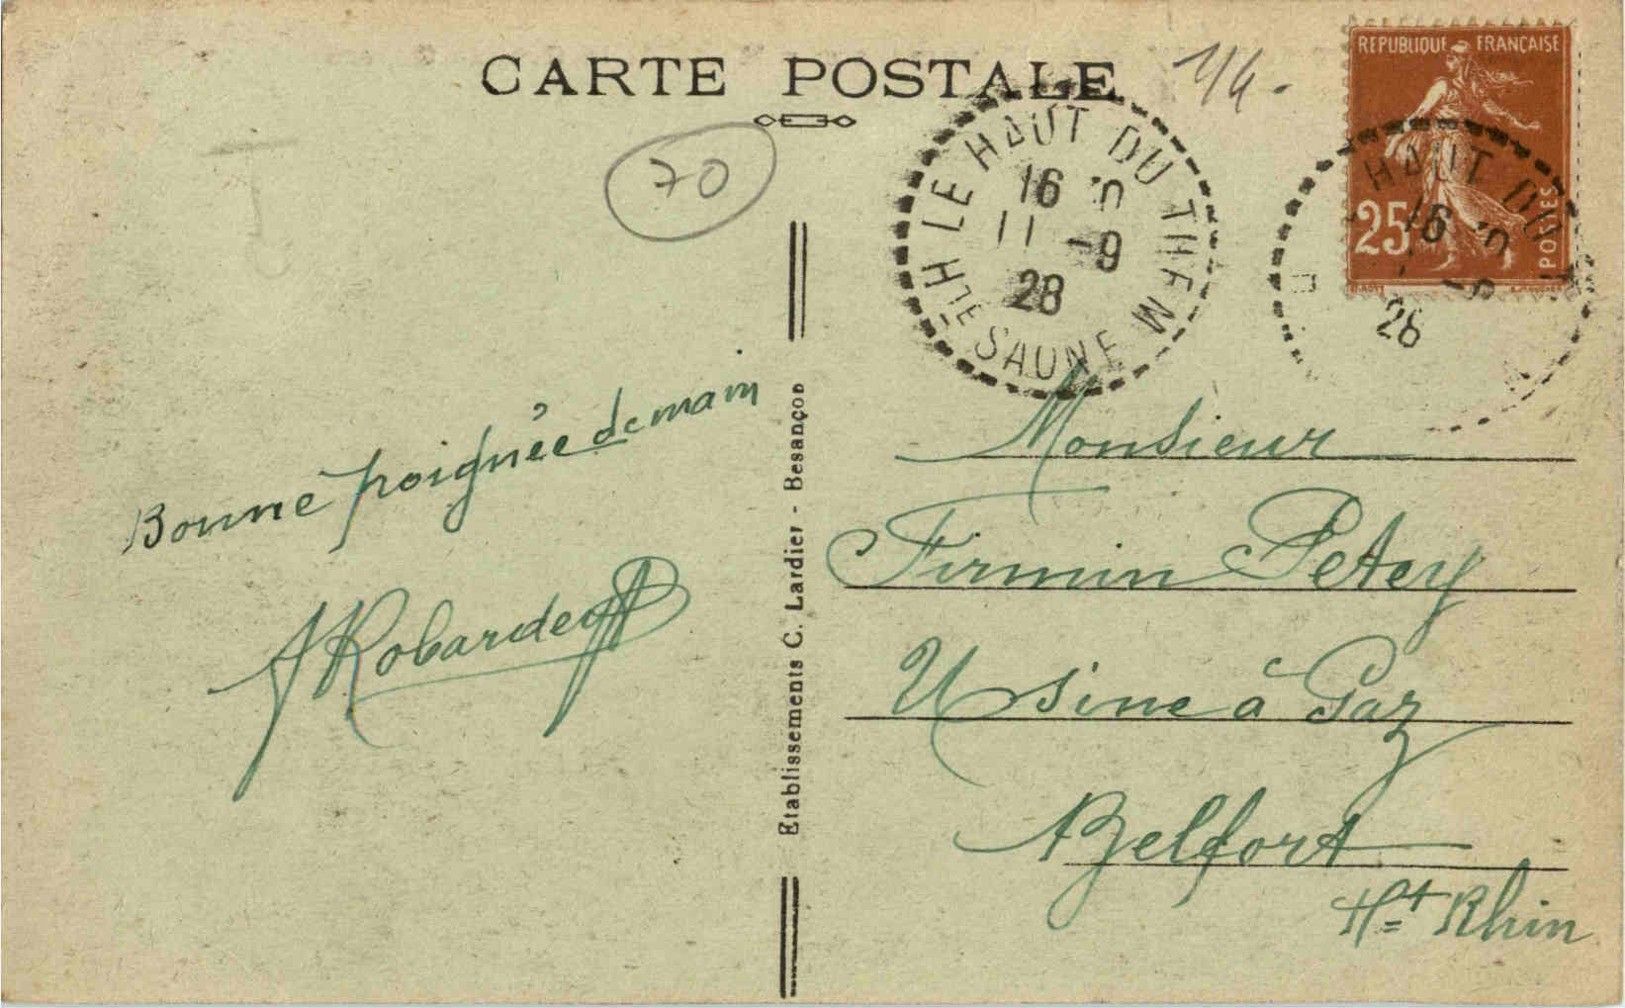 CARTE POSTALE
1/4.
REPUBLIQUE FRANÇAISE
25
POSTES
70
LE HAUT DU THEM
16
11 -9
28
Hte SAONE
HAUT DU
16
28
Bonne poignée de main
Robardey
Etablissements C. Lardier - Besançon
Monsieur
Firmin Petey
Usine à Gaz
Belfort
Ht Rhin